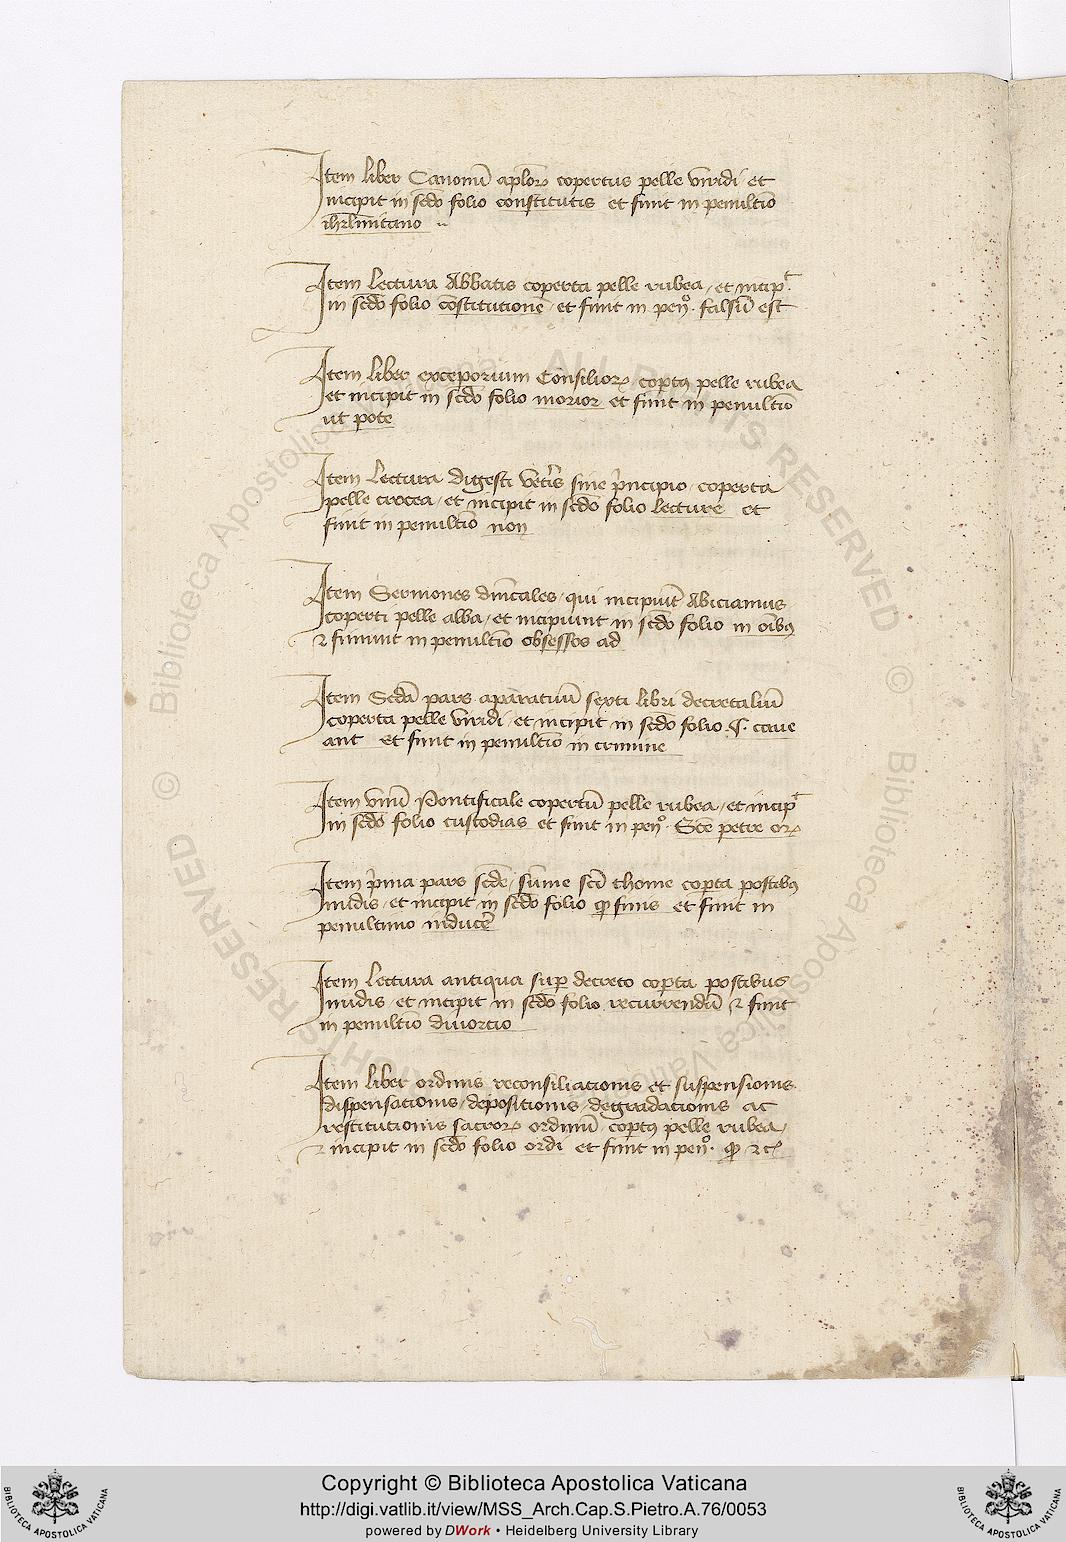 Item liber Canonū aplor̄ copertus pelle viridi et
incipit in scdo folio constitutis et finit in penultīo
ihrlimitano
Item Lectura Abbatis coperta pelle rubea, et incipt
in scdo folio cōstitutionē et finit in peno. falsū est
Item liber exceporium Consilior̄ coptꝰ pelle rubea
et incipit in scdo folio morior et finit in penultīo
ut pote
Item Lectura digesti vetis sine principio, coperta
pelle crocea, et incipit in scdo folio lecture et
finit in penultīo non
Item Sermones dnicales, qui incipiūt Abiciamus
coperti pelle alba, et incipiunt in scdo folio in oībꝰ
⁊ finiunt in penultīo obsessos ad
Item Scdā pars aparatuū sexti libri decretaliū
coperta pelle viridi, et incipit in scdo folio ¶ cave
ant et finit in penultīo in crimine
Item unū Pontificale copertū pelle rubea, et incipt
in scdo folio custodias et finit in peno. Scē petre or̄
Item pima pars scde, sūme scī thome copta postibꝰ
nudis, et incipit in scdo folio ꝙ finis et finit in
penultimo inducēt
Item Lectura antiqua sup decreto copta postibus
nudis et incipit in scdo folio recurrendū ⁊ finit
in penultīo divorcio
Item liber ordinis reconsiliationis et suspensionis
dispensationis, depositionis, degradacionis ac
restitutionis sacror̄ ordinū, coptꝰ pelle rubea,
⁊ incipit in scdo folio ordi et finit in peno. ꝙ ⁊c
Copyright © Biblioteca Apostolica Vaticana
http://digi.vatlib.it/view/MSS_Arch.Cap.S.Pietro.A.76/0053
powered by DWork • Heidelberg University Library
BIBLIOTECA APOSTOLICA VATICANA
BIBLIOTECA APOSTOLICA VATICANA
© Biblioteca Apostolica Vaticana ALL RIGHTS RESERVED
© Biblioteca Apostolica Vaticana ALL RIGHTS RESERVED